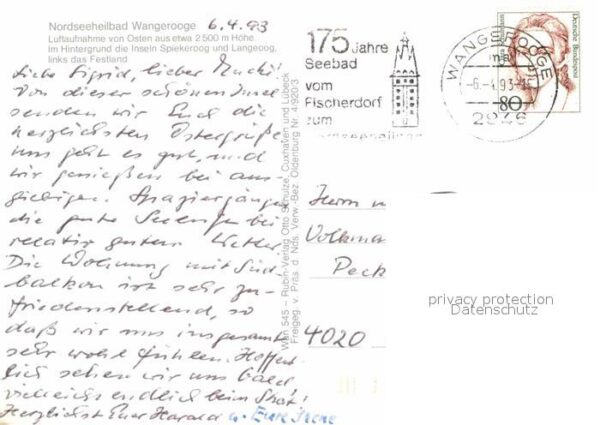 Nordseeheilbad Wangerooge 6.4.93
Luftaufnahme von Osten aus etwa 2500 m Höhe
Im Hintergrund die Inseln Spiekeroog und Langeoog,
links das Festland
Liebe Sigrid, lieber
Von dieser schönen Insel
senden wir Euch die
herzlichsten Ostergrüße
uns geht es gut, und
wir genießen bei aus-
giebigen Spaziergängen
die gute Seeluft bei
relativ gutem Wetter
Die Wohnung mit Süd
balkon ist sehr zu-
friedenstellend, so
daß wir uns insgesamt
sehr wohl fühlen. Hoffent
lich sehen wir uns bald,
vielleicht endlich beim
Herzlichst Euer Harald u. Eure Irene
Wan 545 – Rubin-Verlag Otto Schulze, Cuxhaven und Lübeck
Freigeg. v. Präs. d. Nds. Verw.-Bez. Oldenburg Nr. 4920/3
175 Jahre
Seebad
vom
Fischerdorf
zum
WANGEROOGE
-6.-4.93-
2946
Deutsche Bundespost
80
Herrn
Volkma
Peck
4020
privacy protection
Datenschutz